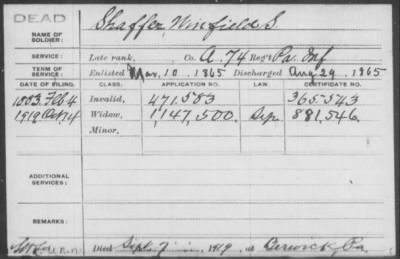 DEAD
NAME OF SOLDIER: Shaffer, Winfield S.
SERVICE: Late rank, Co. A. 74 Reg't Pa. Inf
TERM OF SERVICE: Enlisted Mar. 10, 1865 Discharged Aug 29, 1865
DATE OF FILING. CLASS. APPLICATION NO. LAW. CERTIFICATE NO.
1883. Feb 4 Invalid, 471.583 365.543
1919 Oct 14 Widow, 1,147,500. 881,546.
Minor,
ADDITIONAL SERVICES:
REMARKS:
Died Sept. 1919, at Berwick, Pa.